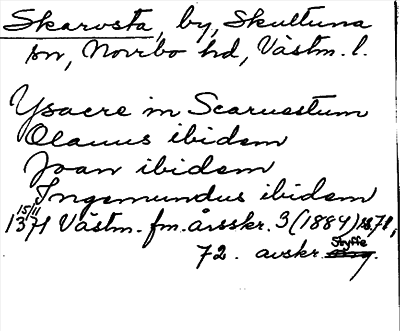 Skarvsta, by, Skultuna
sn, Norrbo hd, Västm. l.
Ysacre in Scaruestum
Olauus ibidem
Joan ibidem
Ingemundus ibidem
15/11
1371 Västm. fm. årsskr. 3 (1884) s. 71,
Styffe
72. avskr.